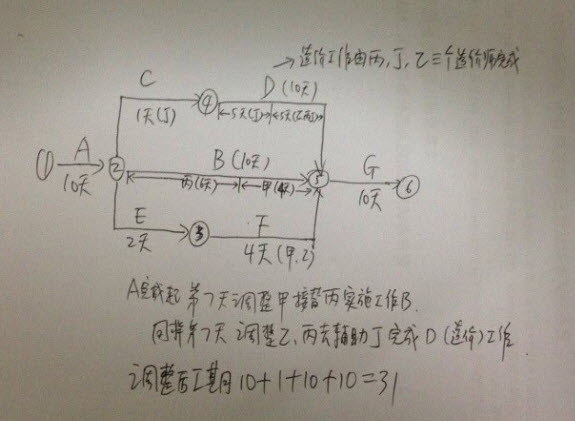 →造价工作由丙,丁,乙三个造价师完成
C
D(10天)
④
1天(丁)
5天(丁)
5天(乙丙丁)
①
A
10天
②
B(10天)
丙(6天)
甲(4天)
⑤
G
10天
⑥
E
2天
③
F
4天(甲,乙)
A完成起第7天调整甲接替丙实施工作B.
同样第7天调整乙、丙去辅助丁完成D(造价)工作
调整后工期10+1+10+10=31